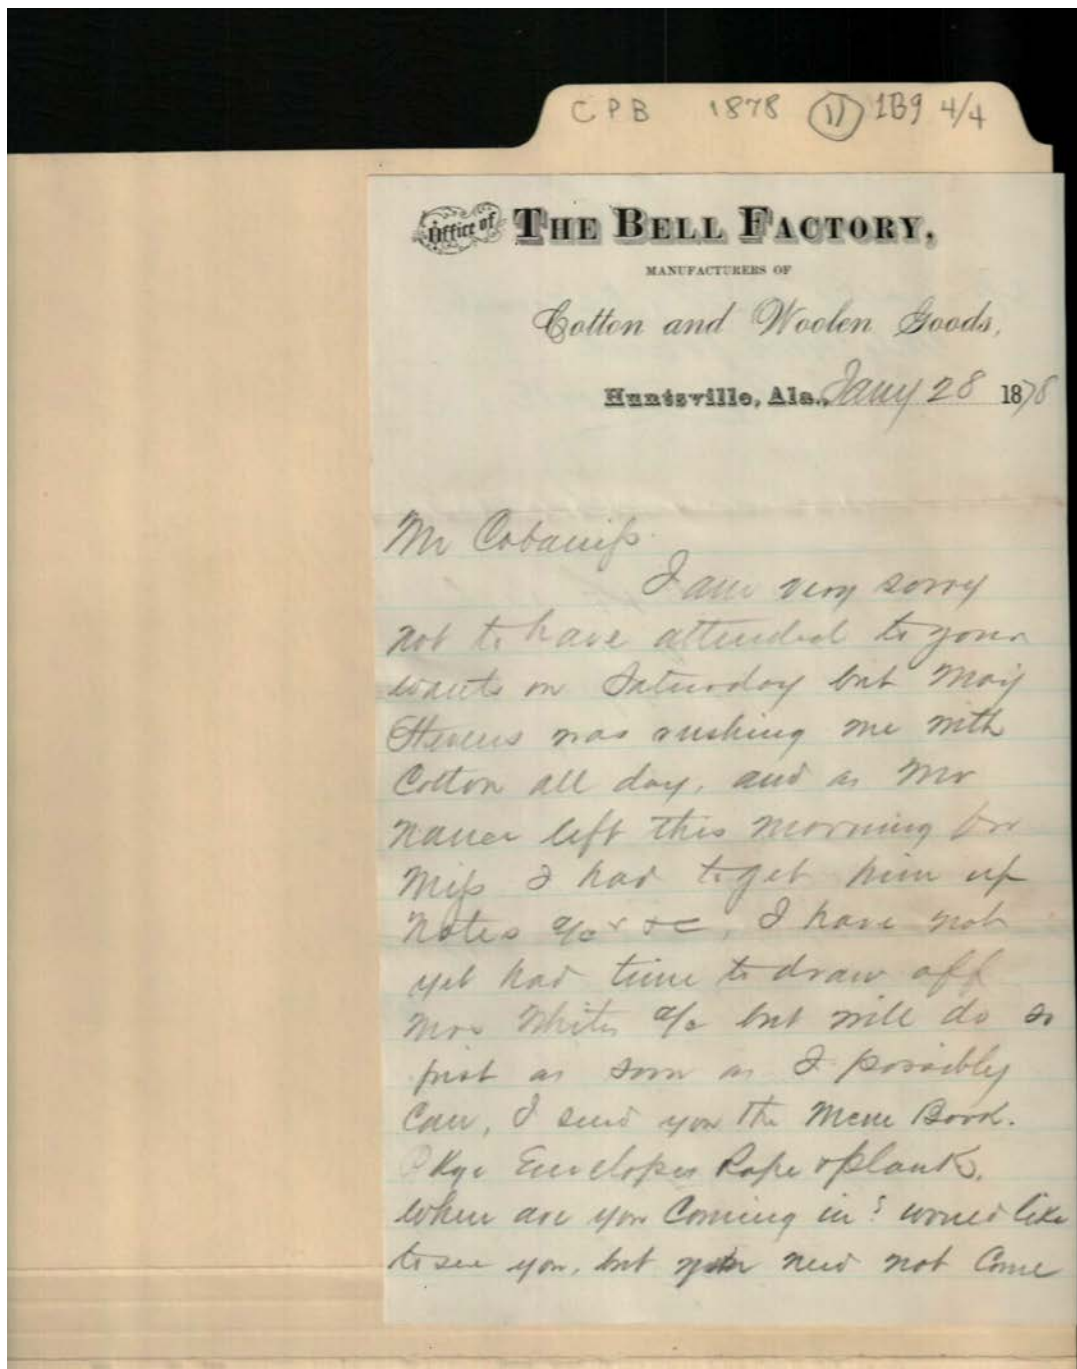 CPB 1878 11 1B9 4/4
Office of THE BELL FACTORY,
MANUFACTURERS OF
Cotton and Woolen Goods,
Huntsville, Ala., Jany 28 1878
Mr Cabaniss
I am very sorry
not to have attended to your
wants on Saturday but Maj
Stevens was rushing me with
Cotton all day, and as Mr
Nance left this morning for
Miss I had to get him up
Notes a/cs &c, I have not
yet had time to draw off
Mrs Whites a/c but will do so
just as soon as I possibly
Can, I send you the Mem Book.
Pkge Envelopes Rope & plank.
When are you Coming in? would like
to see you, but you need not Come